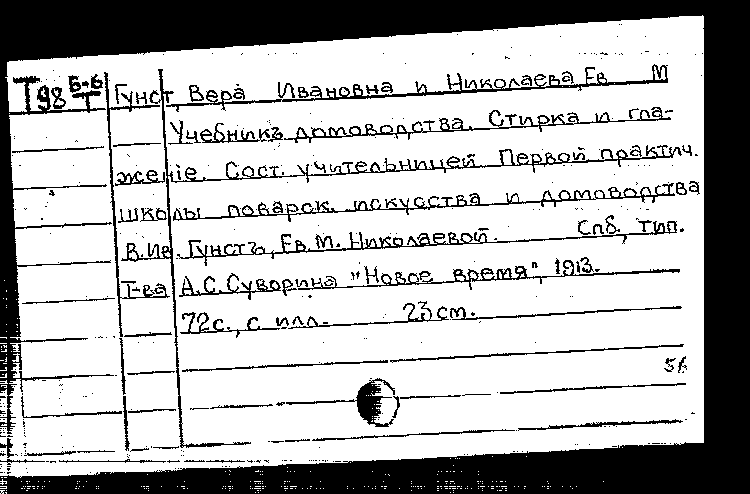 Т98 Б-6/Т Гунст, Вера Ивановна и Николаева, Ев. М
Учебникъ домоводства. Стирка и гла-
женіе. Сост. учительницей Первой практич.
школы поварск. искусства и домоводства
В.Ив. Гунстъ, Ев. М. Николаевой. Спб., тип.
Т-ва А.С. Суворина "Новое время", 1913.
72с., с илл. 23 см.